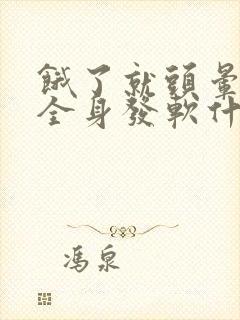 餓了就頭暈
全身發軟什
馮泉